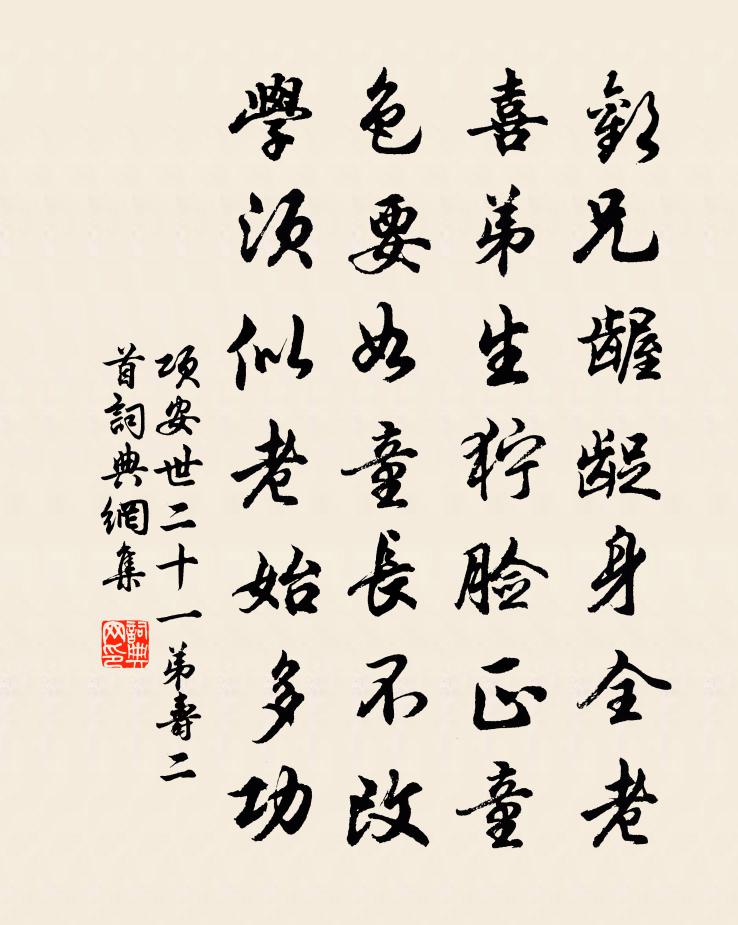 歎兄齷齪身全老
喜弟生狞脸正童
色要如童長不改
學須似老始多功
項安世二十一弟壽二
首詞典網集
詞典
网印